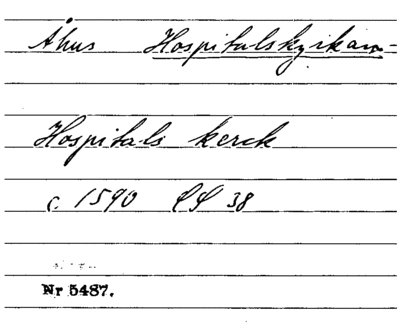 Åhus Hospitalskyrkan
Hospitals kerck
c. 1590 38
Nr 5487.